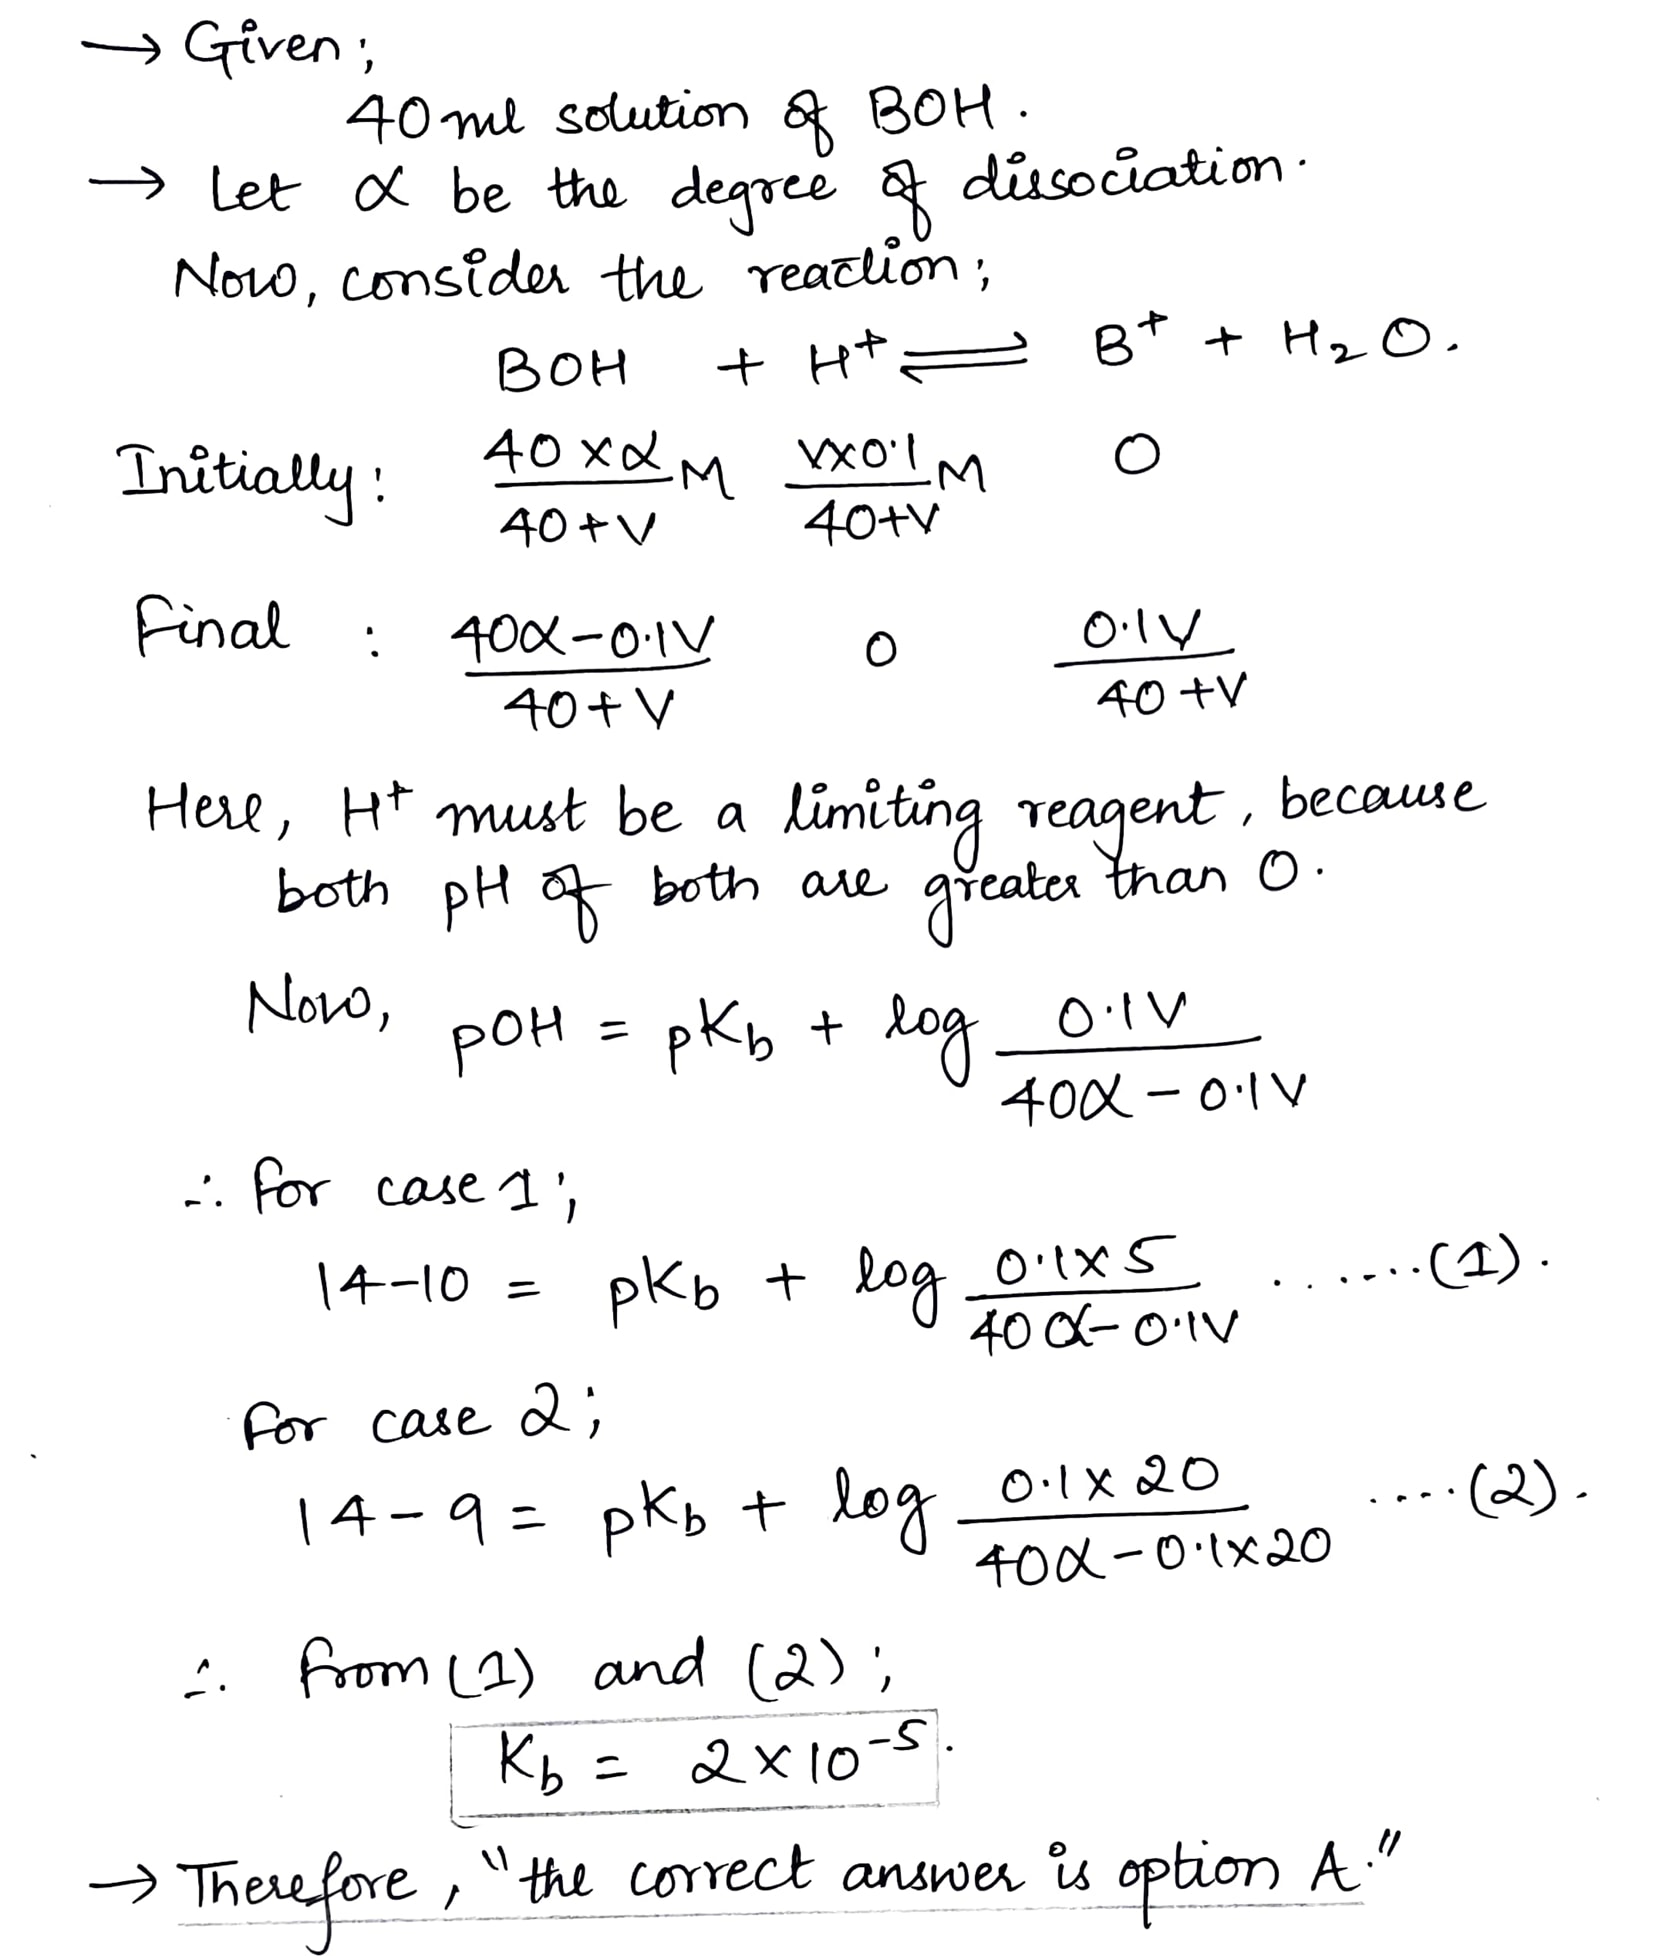 → Given;
40 ml solution of BOH.
→ Let α be the degree of dissociation.
Now, consider the reaction;
BOH + H⁺ ⇌ B⁺ + H₂O.
Initially: (40×α)/(40+V) M (V×0.1)/(40+V) M 0
Final : (40α-0.1V)/(40+V) 0 (0.1V)/(40+V)
Here, H⁺ must be a limiting reagent, because
both pH of both are greater than 0.
Now, pOH = pKb + log (0.1V)/(40α-0.1V)
∴ for case 1;
14-10 = pKb + log (0.1×5)/(40α-0.1V) ......(1).
for case 2;
14-9 = pKb + log (0.1×20)/(40α-0.1×20) ....(2).
∴ from (1) and (2);
Kb = 2×10⁻⁵.
→ Therefore, "the correct answer is option A."